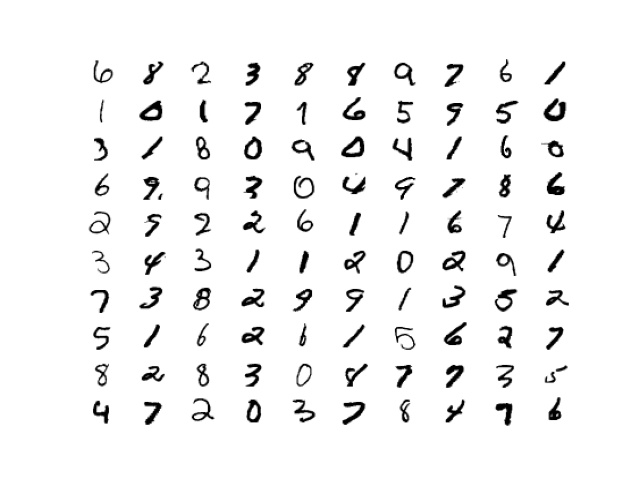 6 8 2 3 8 8 9 7 6 1
1 0 1 7 1 6 5 9 5 0
3 1 8 0 9 0 4 1 6 0
6 9 9 3 0 4 9 7 8 6
2 9 2 6 1 1 6 7 4
3 4 3 1 1 2 0 2 9 1
7 3 8 2 9 9 1 3 5 2
5 1 6 2 6 1 5 6 2 7
8 2 8 3 0 8 7 7 3 5
4 7 2 0 3 7 8 4 7 6